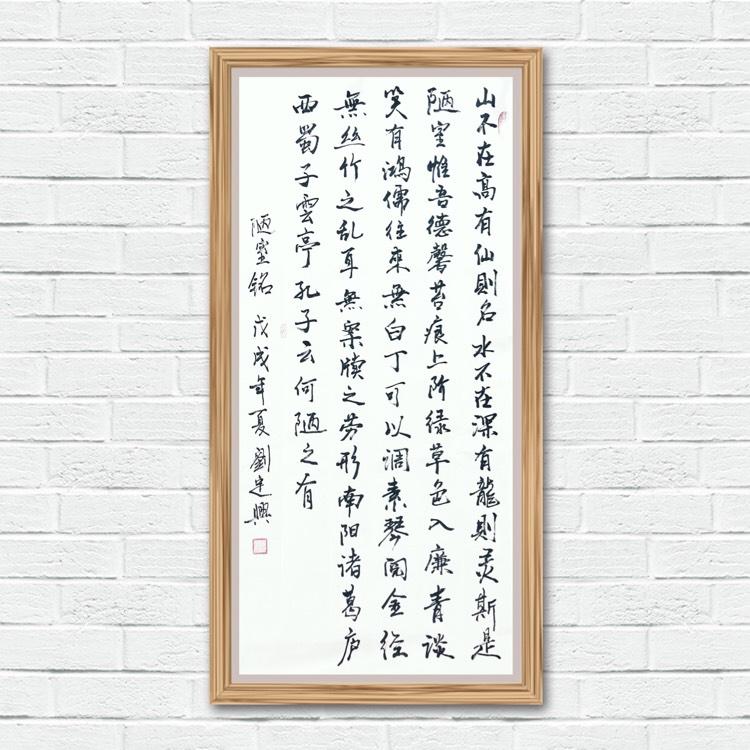 山不在高有仙則名水不在深有龍則灵斯是
陋室惟吾德馨苔痕上阶绿草色入廉青谈
笑有鴻儒往來無白丁可以调素琴阅金经
無丝竹之乱耳無案牍之劳形南阳诸葛庐
西蜀子雲亭孔子云何陋之有
陋室铭 戊戌年夏 劉建興